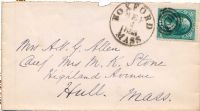 ROXFORD
SEP
MASS.
Mrs A. G. Allen
Care Mrs M. K. Stone
Highland Avenue
Hull.
Mass.